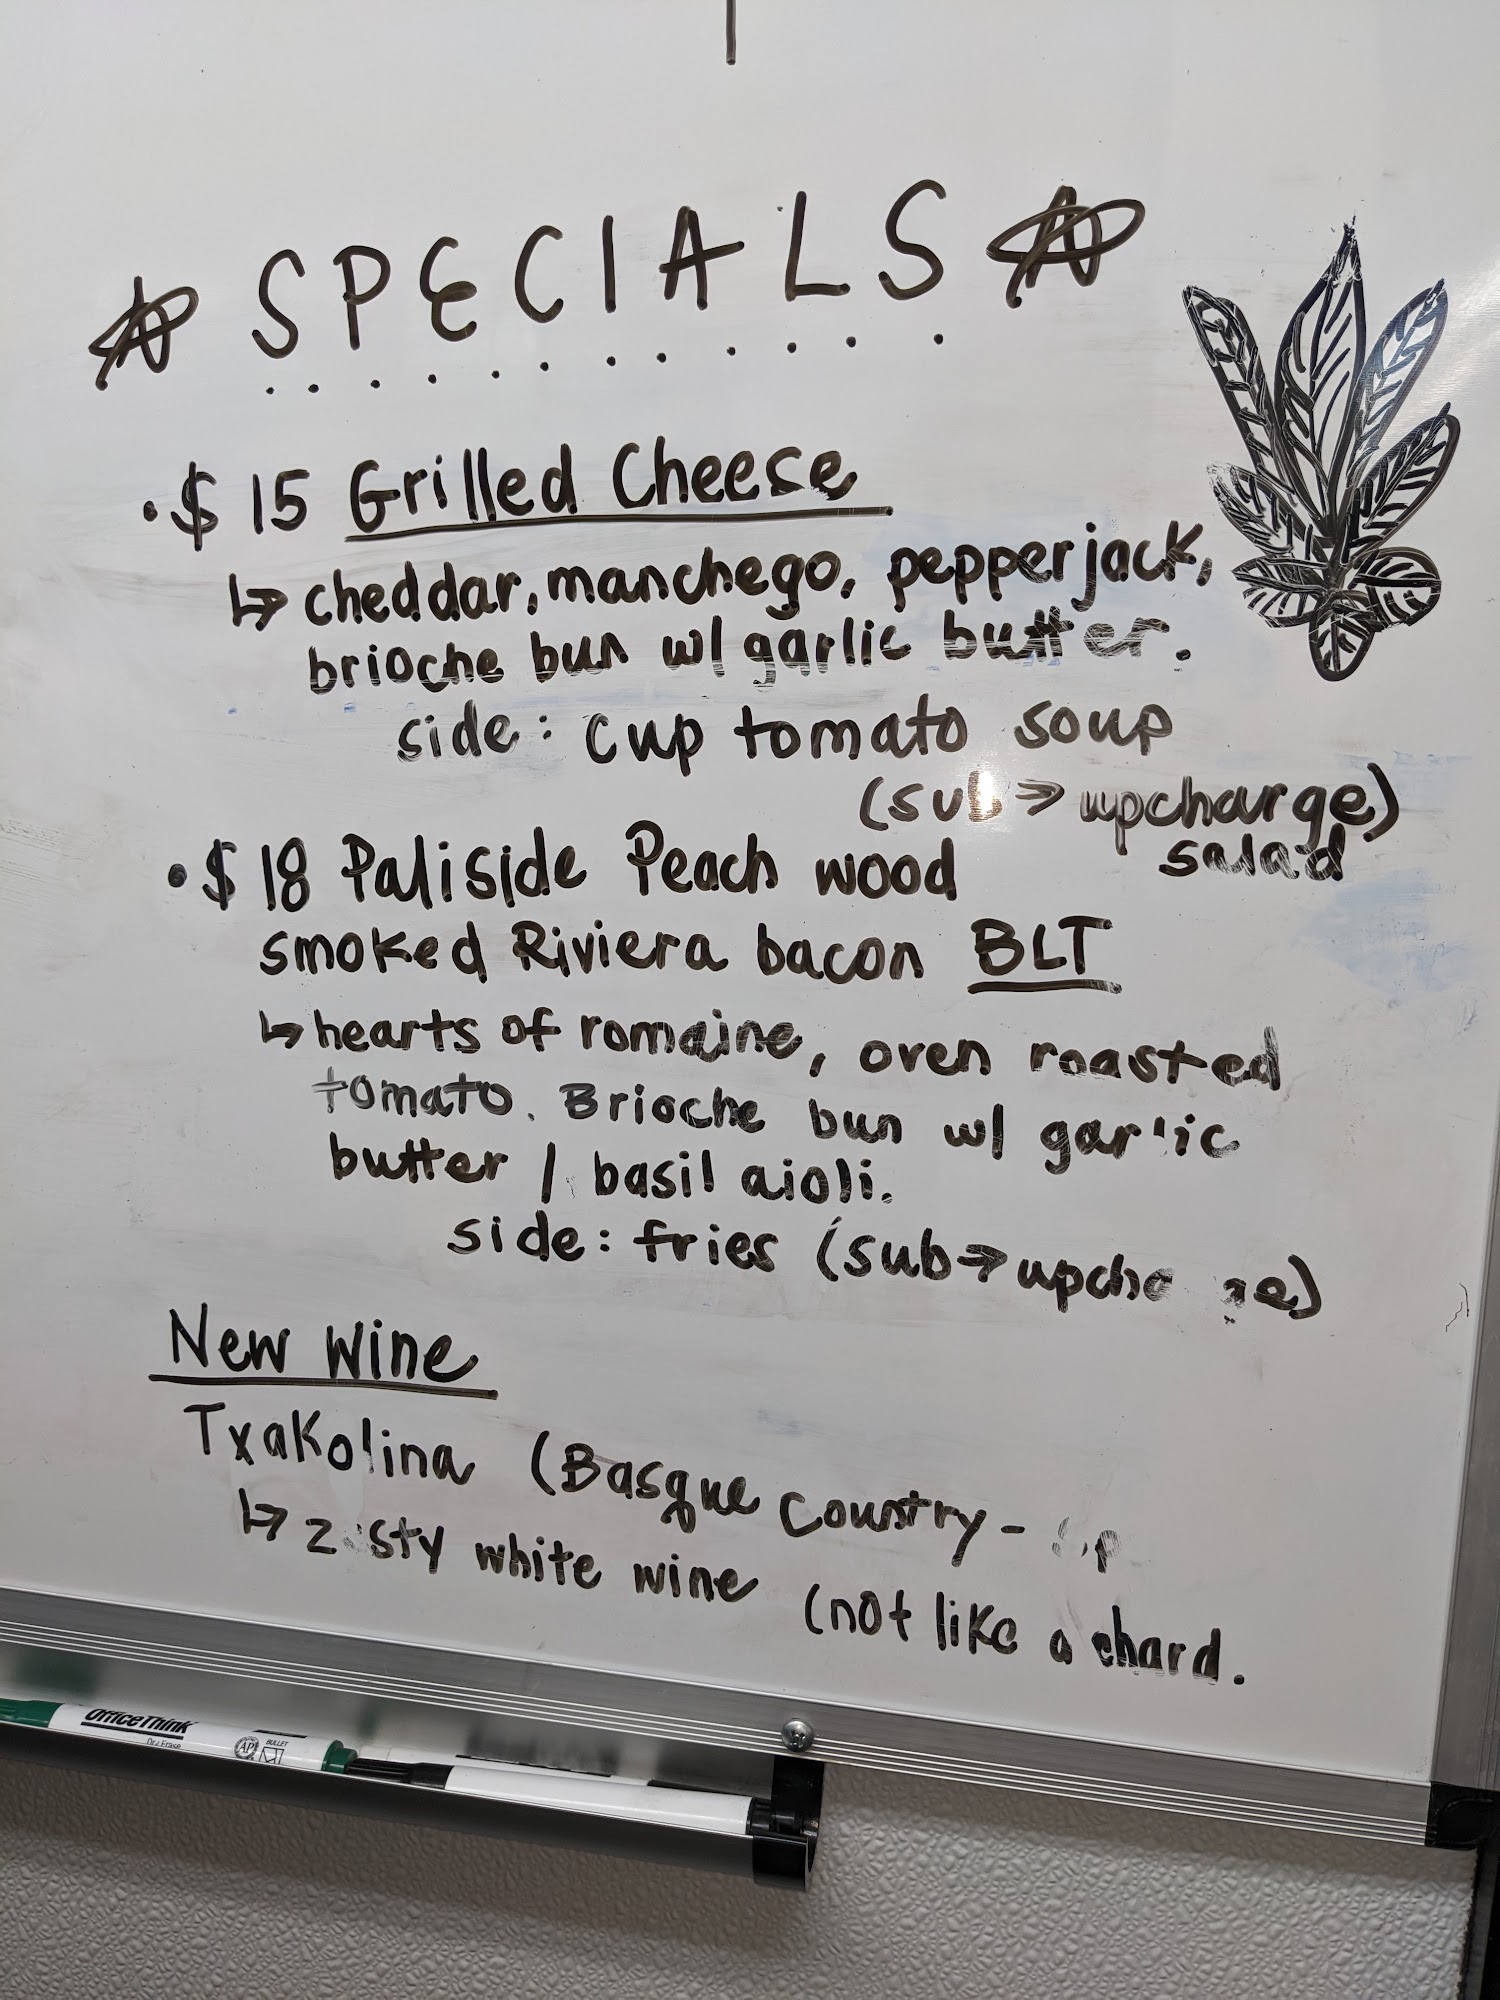 SPECIALS
• $ 15 Grilled Cheese
↳ cheddar, manchego, pepperjack,
brioche bun w/ garlic butter.
side: cup tomato soup
(sub → upcharge)
salad
• $ 18 Paliside Peach wood
smoked Riviera bacon BLT
↳ hearts of romaine, oven roasted
tomato. Brioche bun w/ garlic
butter / basil aioli.
side: fries (sub →
New Wine
Txakolina (Basque Country -
↳ zesty white wine (not like a chard.
OfficeThink
Dry Erase
AP
BULLET